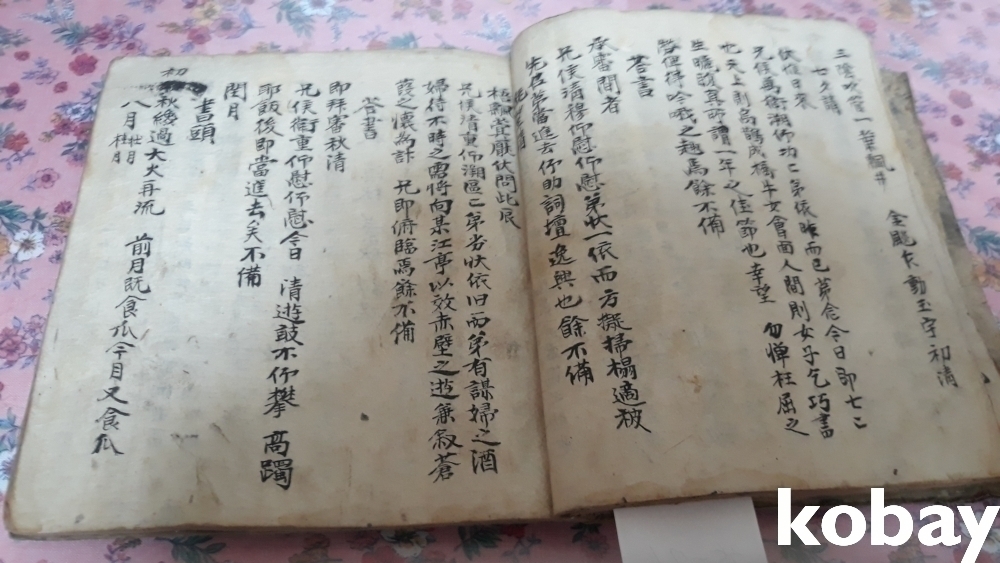 一葉飄井 金颷乍動玉宇初清
七夕請
兄候萬衛溯仰 弟依昨而已第念今日即七七
也天上則烏鵲成橋牛女會面人間則女子乞巧書
生曬腹眞所謂一年之佳節也幸望 勿憚枉屈之
勞俾得吟哦之趣焉餘不備
答書
承審間者
兄候清穆仰慰仰慰弟狀一依而方擬掃榻適被
先屈第當進去仰助詞壇逸興也餘不備
梧飄蓂厭伏問此辰
兄候清重仰溯區區弟劣狀依旧而第有謀婦之酒
婦待不時之需將向某江亭以效赤壁之遊兼叙蒼
葭之懷為計 兄即俯臨焉餘不備
答書
即拜審秋清
兄候衛重仰慰仰慰今日 清遊敢不仰攀 高躅
耶飯後即當進去矣不備
閏月
書頭
初秋纔過大火再流 前月旣食瓜今月又食瓜
八月 壯月 桂月
kobay